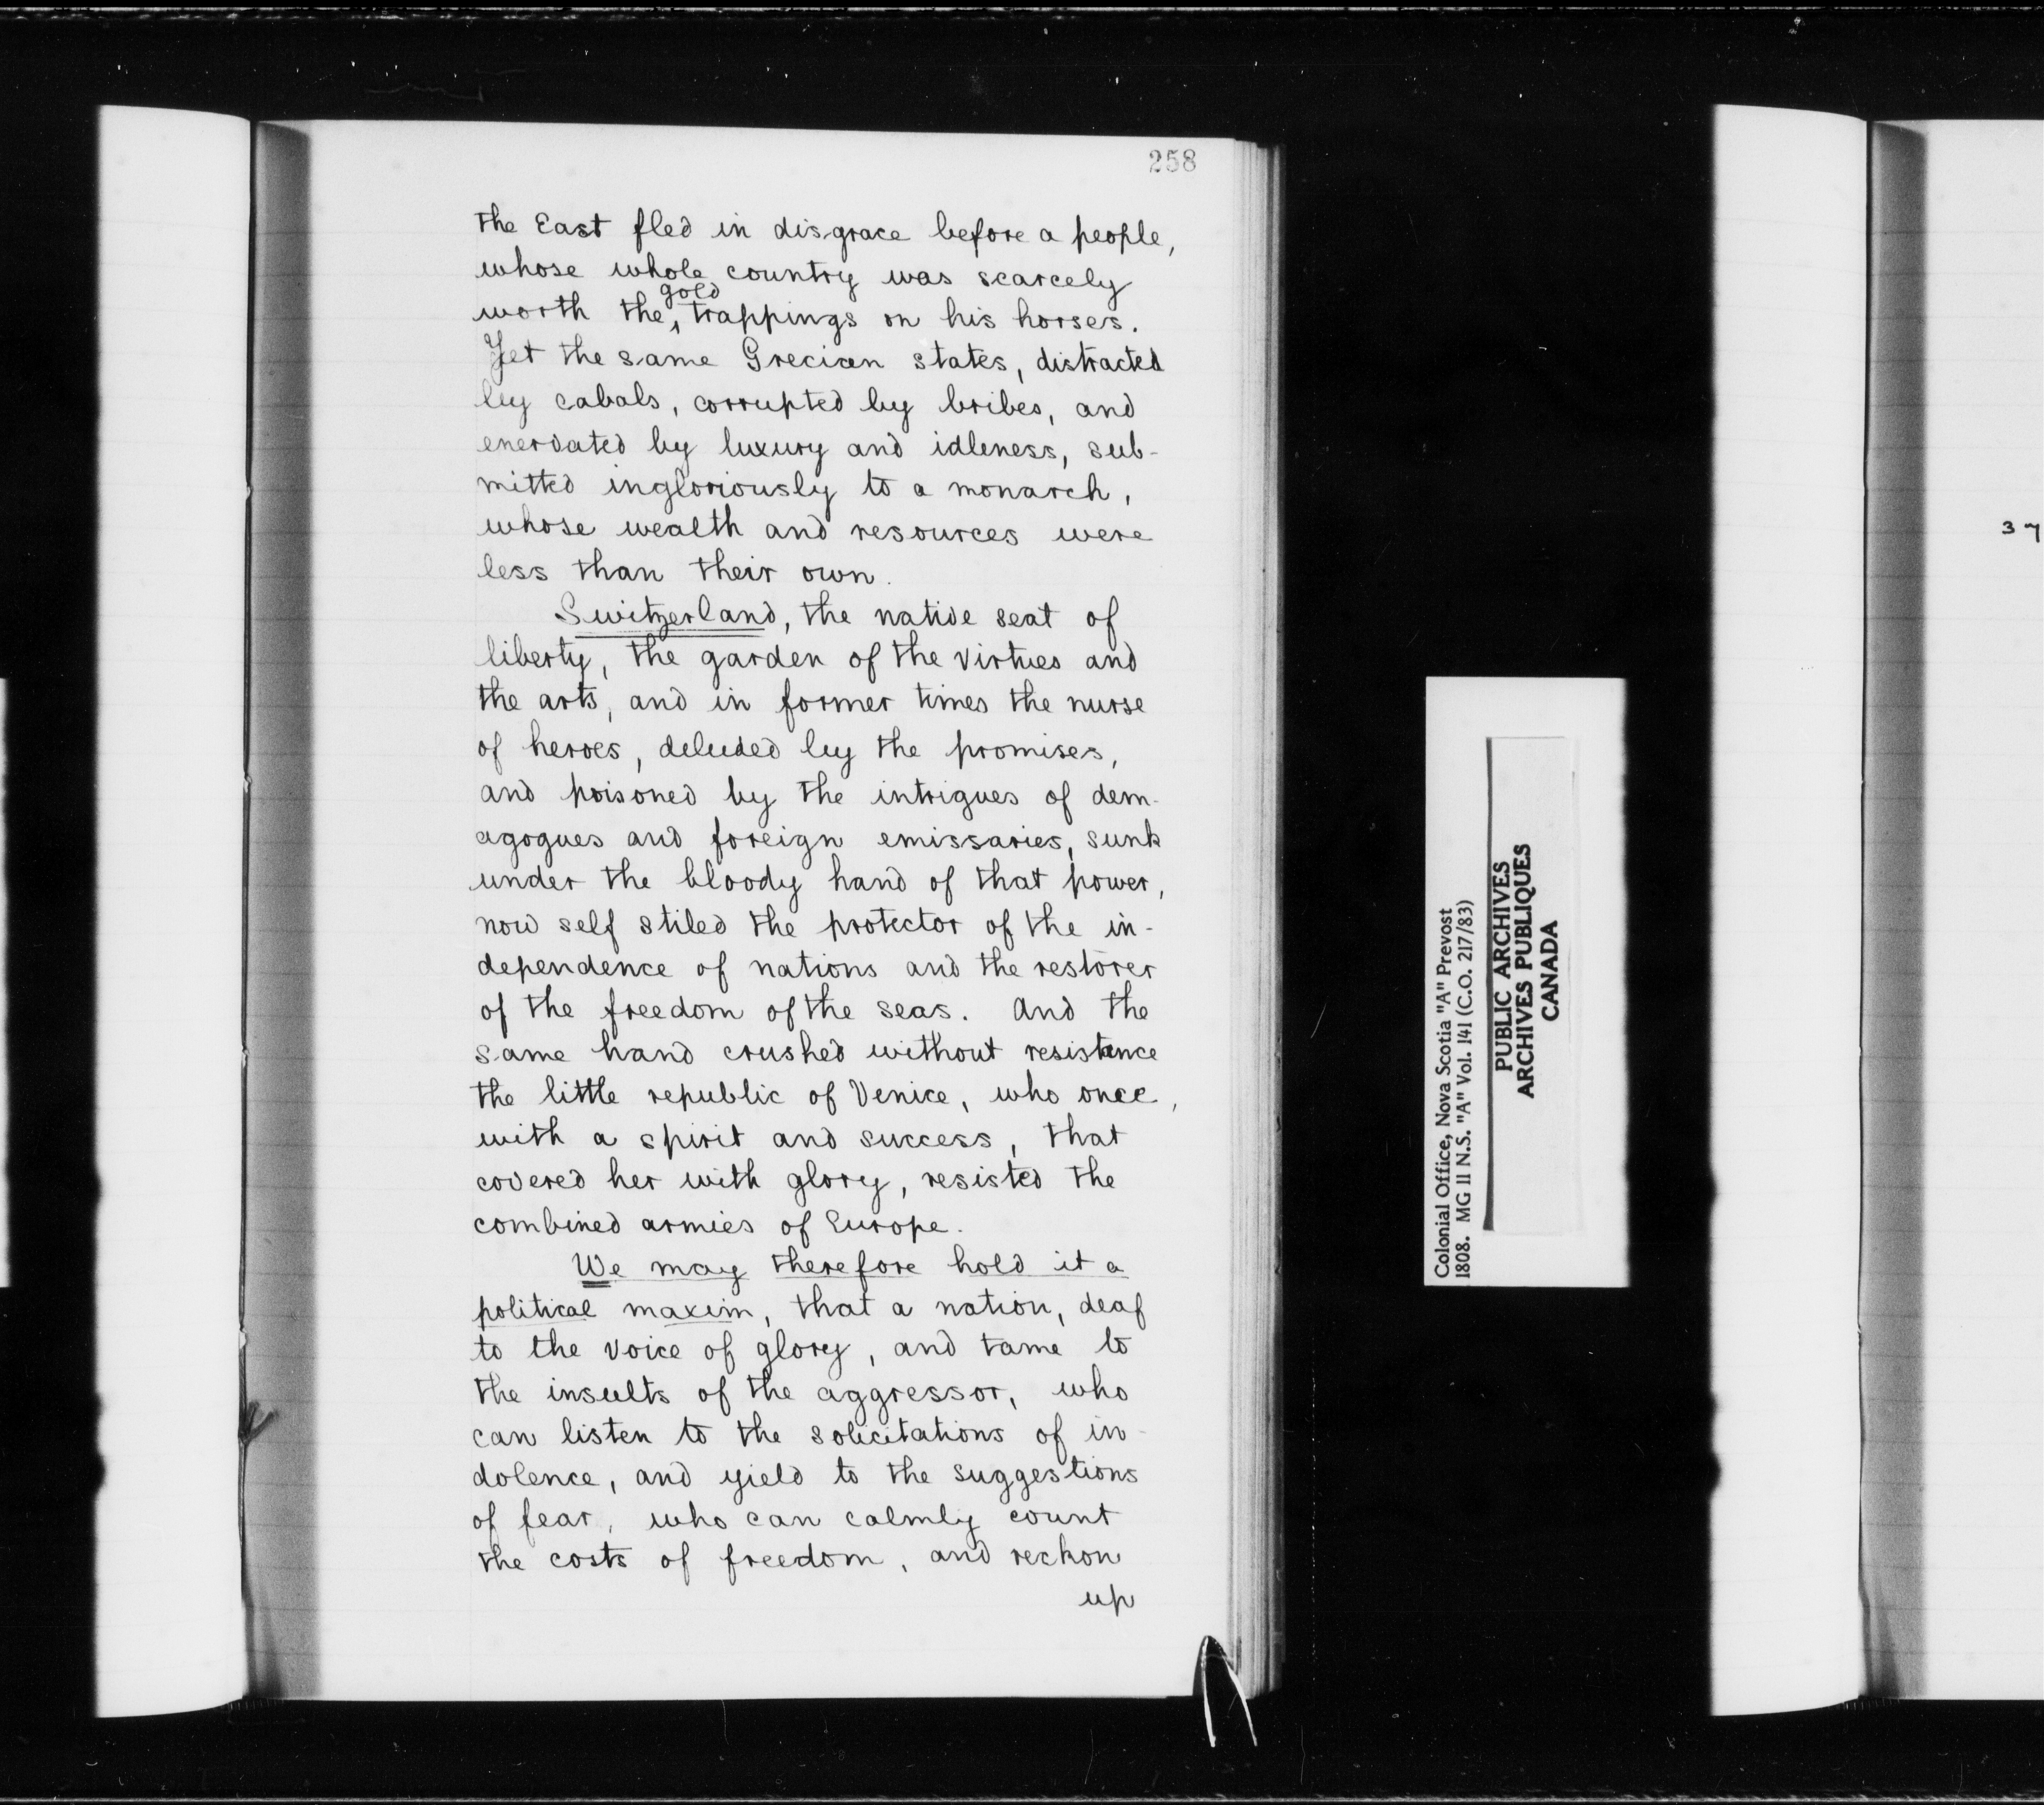 258
the East fled in disgrace before a people,
whose whole country was scarcely
gold
worth the ‸ trappings on his horses.
Yet the same Grecian states, distracted
by cabals, corrupted by bribes, and
enervated by luxury and idleness, sub-
mitted ingloriously to a monarch,
whose wealth and resources were
less than their own.
Switzerland, the native seat of
liberty, the garden of the virtues and
the arts, and in former times the nurse
of heroes, deluded by the promises,
and poisoned by the intrigues of dem-
agogues and foreign emissaries, sunk
under the bloody hand of that power,
now self stiled the protector of the in-
dependence of nations and the restorer
of the freedom of the seas. And the
same hand crushed without resistance
the little republic of Venice, who once,
with a spirit and success, that
covered her with glory, resisted the
combined armies of Europe.
We may therefore hold it a
political maxim, that a nation, deaf
to the voice of glory, and tame to
the insults of the aggressor, who
can listen to the solicitations of in-
dolence, and yield to the suggestions
of fear, who can calmly count
the costs of freedom, and reckon
up
Colonial Office, Nova Scotia "A" Prevost
1808. MG 11 N.S. "A" Vol. 141 (C.O. 217/83)
PUBLIC ARCHIVES
ARCHIVES PUBLIQUES
CANADA